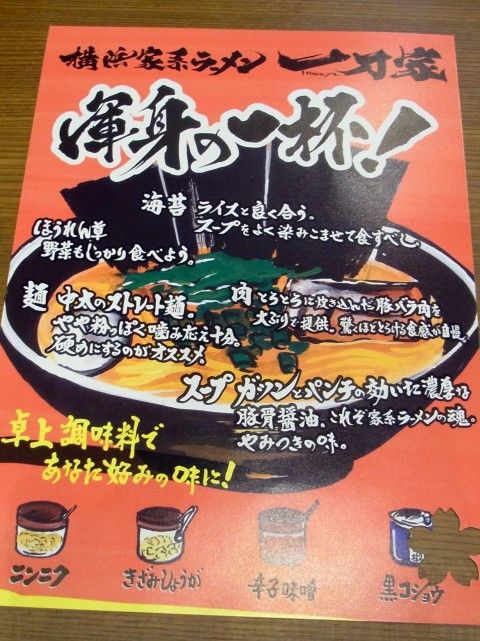 横浜家系ラーメン 一刀家
渾身の一杯!
海苔 ライスと良く合う。
スープをよく染みこませて食すべし
ほうれん草
野菜もしっかり食べよう。
麺 中太のストレート麺。
やや粉っぽく噛み応え十分。
硬めにするのがオススメ
肉 とろとろに炊き込んだ豚バラ肉を
大ぶりで提供。驚くほどとろける食感が自慢。
スープ ガツンとパンチの効いた濃厚な
豚骨醤油。これぞ家系ラーメンの魂。
やみつきの味。
卓上調味料で
あなた好みの味に!
ニンニク
きざみしょうが
辛子味噌
黒コショウ